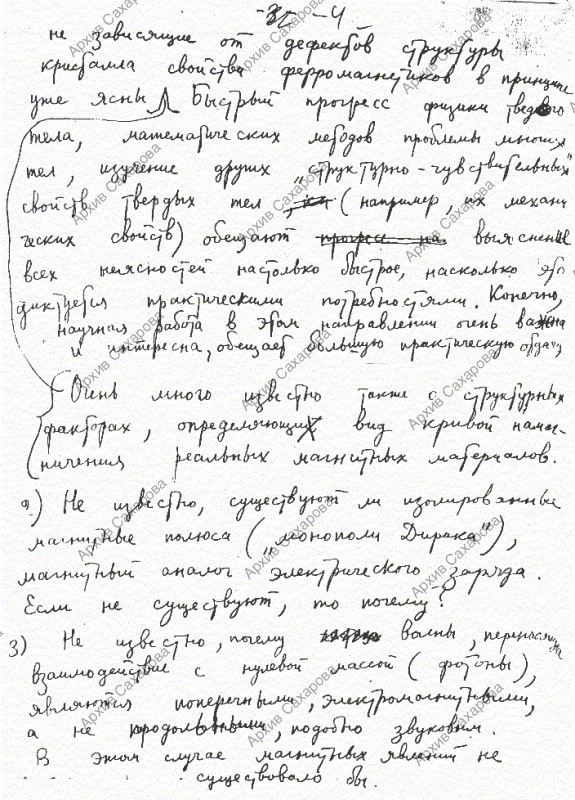 - 4
не зависящие от дефектов структуры
кристалла свойства ферромагнетиков в принципе
уже ясны Быстрый прогресс физики твердого
тела, математических методов проблемы многих
тел, изучение других „структурно-чувствительных"
свойств твердых тел (например их механи
ческих свойств) обещают прогресс на выяснение
всех неясностей настолько быстрое, насколько это
диктуется практическими потребностями. Конечно,
научная работа в этом направлении очень важна
и интересна, обещает большую практическую отдачу
Очень много известно также о структурных
факторах, определяющих вид кривой намаг-
ничения реальных магнитных материалов.
2) Не известно, существуют ли изолированные
магнитные полюса („монополи Дирака"),
магнитный аналог электрического заряда.
Если не существуют, то почему?
3) Не известно, почему волны, переносящие
взаимодействие с нулевой массой (фотоны),
являются поперечными, электромагнитными,
а не продольными, подобно звуковым.
В этом случае магнитных явлений не
существовало бы.
Архив Сахарова